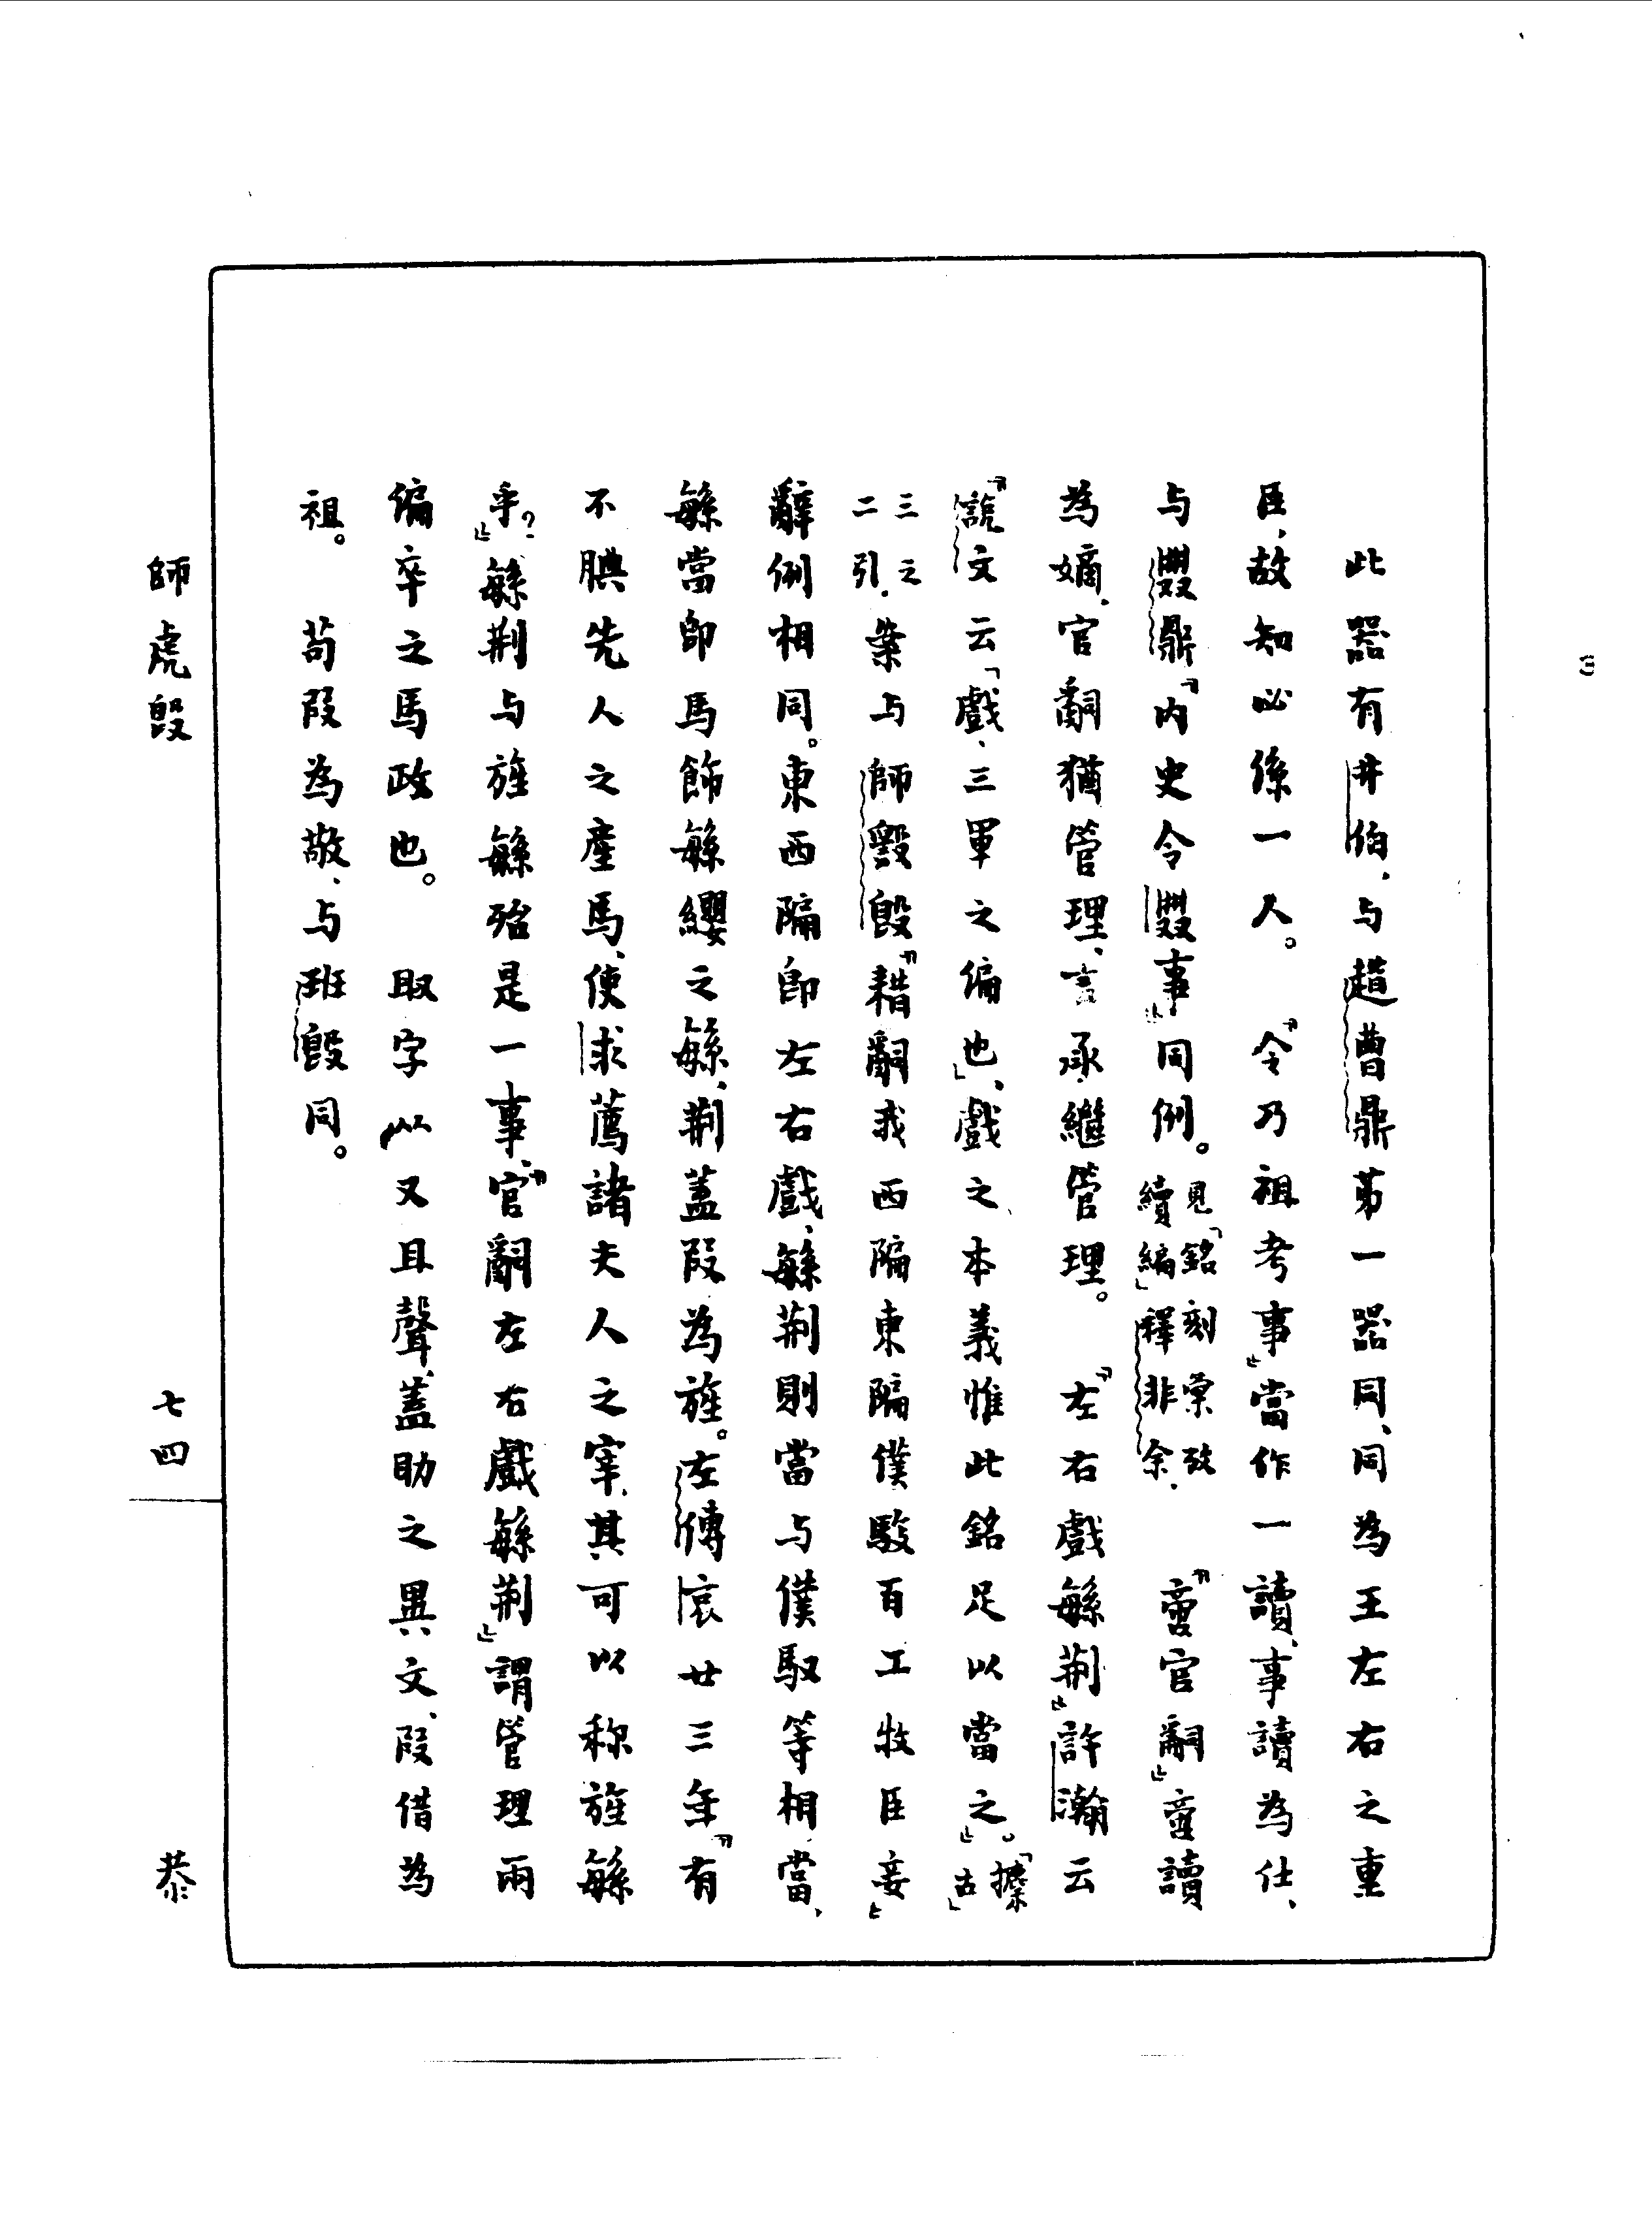 此器有井伯、与趞曹鼎苐一器同、同為王左右之重
臣、故知必係一人。『令乃祖考事』當作一讀、事讀為仕、
与䙴鼎『内史令䙴事』同例。見「銘刻彙攷續編」釋非余.『啻官𤔲』啻讀
為嫡、官𤔲猶管理、言承繼管理。『左右戲緐荆』許瀚云
『説文云「戲、三軍之偏也」、戲之本義惟此銘足以當之』。「攈古」
三之二引.案与師毀𣪘『耤𤔲我西隔東隔僕駿百工牧臣妾』
辭例相同。東西隔即左右戲、緐荆則當与僕馭等相當、
緐當即馬飾緐纓之緐、荆蓋叚為旌。左傳哀廿三年『有
不腆先人之產馬、使求薦諸夫人之宰、其可以称旌緐
乎？』緐荆与旌緐殆是一事、『官𤔲左右戲緐荆』謂管理兩
偏卒之馬政也。 取字从又且聲、蓋助之異文、叚借為
祖。 苟叚為敬、与班𣪘同。
師虎𣪘
七四
恭
3